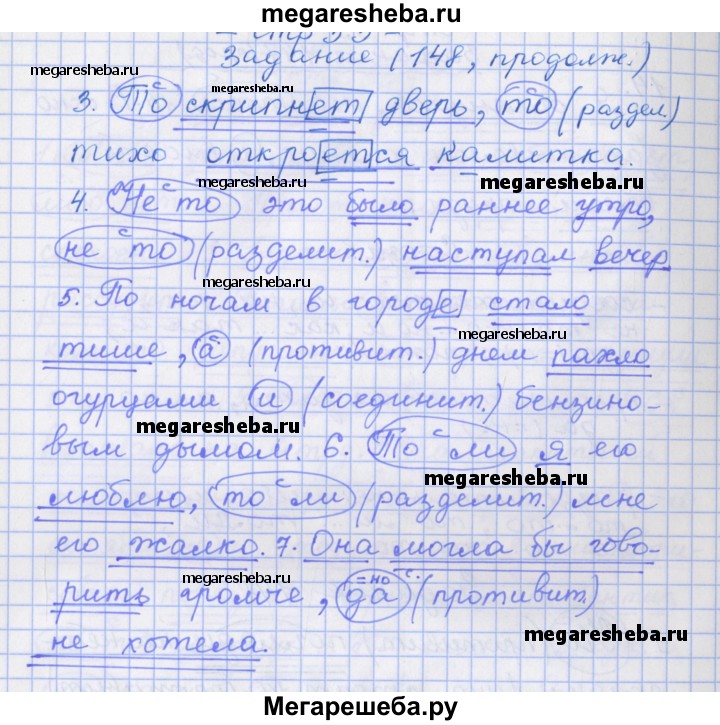 megaresheba.ru
– стр 59 –
Задание (148, продолж.)
megaresheba.ru megaresheba.ru
с
3. То скрипнет дверь, то (раздел.)
тихо откроется калитка.
megaresheba.ru megaresheba.ru
с
4. Не то это было раннее утро,
с
не то (разделит.) наступал вечер
megaresheba.ru
5. По ночам в городе стало
megaresheba.ru
с
тише, а (противит.) днем пахло
megaresheba.ru
огурцами и (соединит.) бензино-
megaresheba.ru
вым дымом. 6. То ли я его
megaresheba.ru
с
люблю, то ли (разделит.) мне
его жалко. 7. Она могла бы гово-
megaresheba.ru =но с.
рить громче, да (противит.)
не хотела.
megaresheba.ru
megaresheba.ru
Мегарешеба.ру